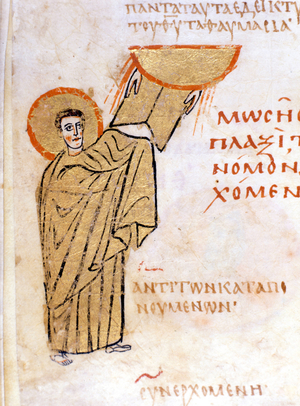 ΠΑΝΤΑΤΑΥΤΑΕΔΕΙΚΤΥ
ΤΟΥΘΥΤΑΦΑΥΜΑΡΙΑ
ΜΩCΗC
ΠΛΑΞΙ,Τ
ΝΟΜΟΝ
ΧΟΜΕΝ
ΑΝΤΙΤΩΝΚΑΤΑΠΟ
ΝΟΥΜΕΝΩΝ·
CΥΝΕΡΧΟΜΕΝΗ·